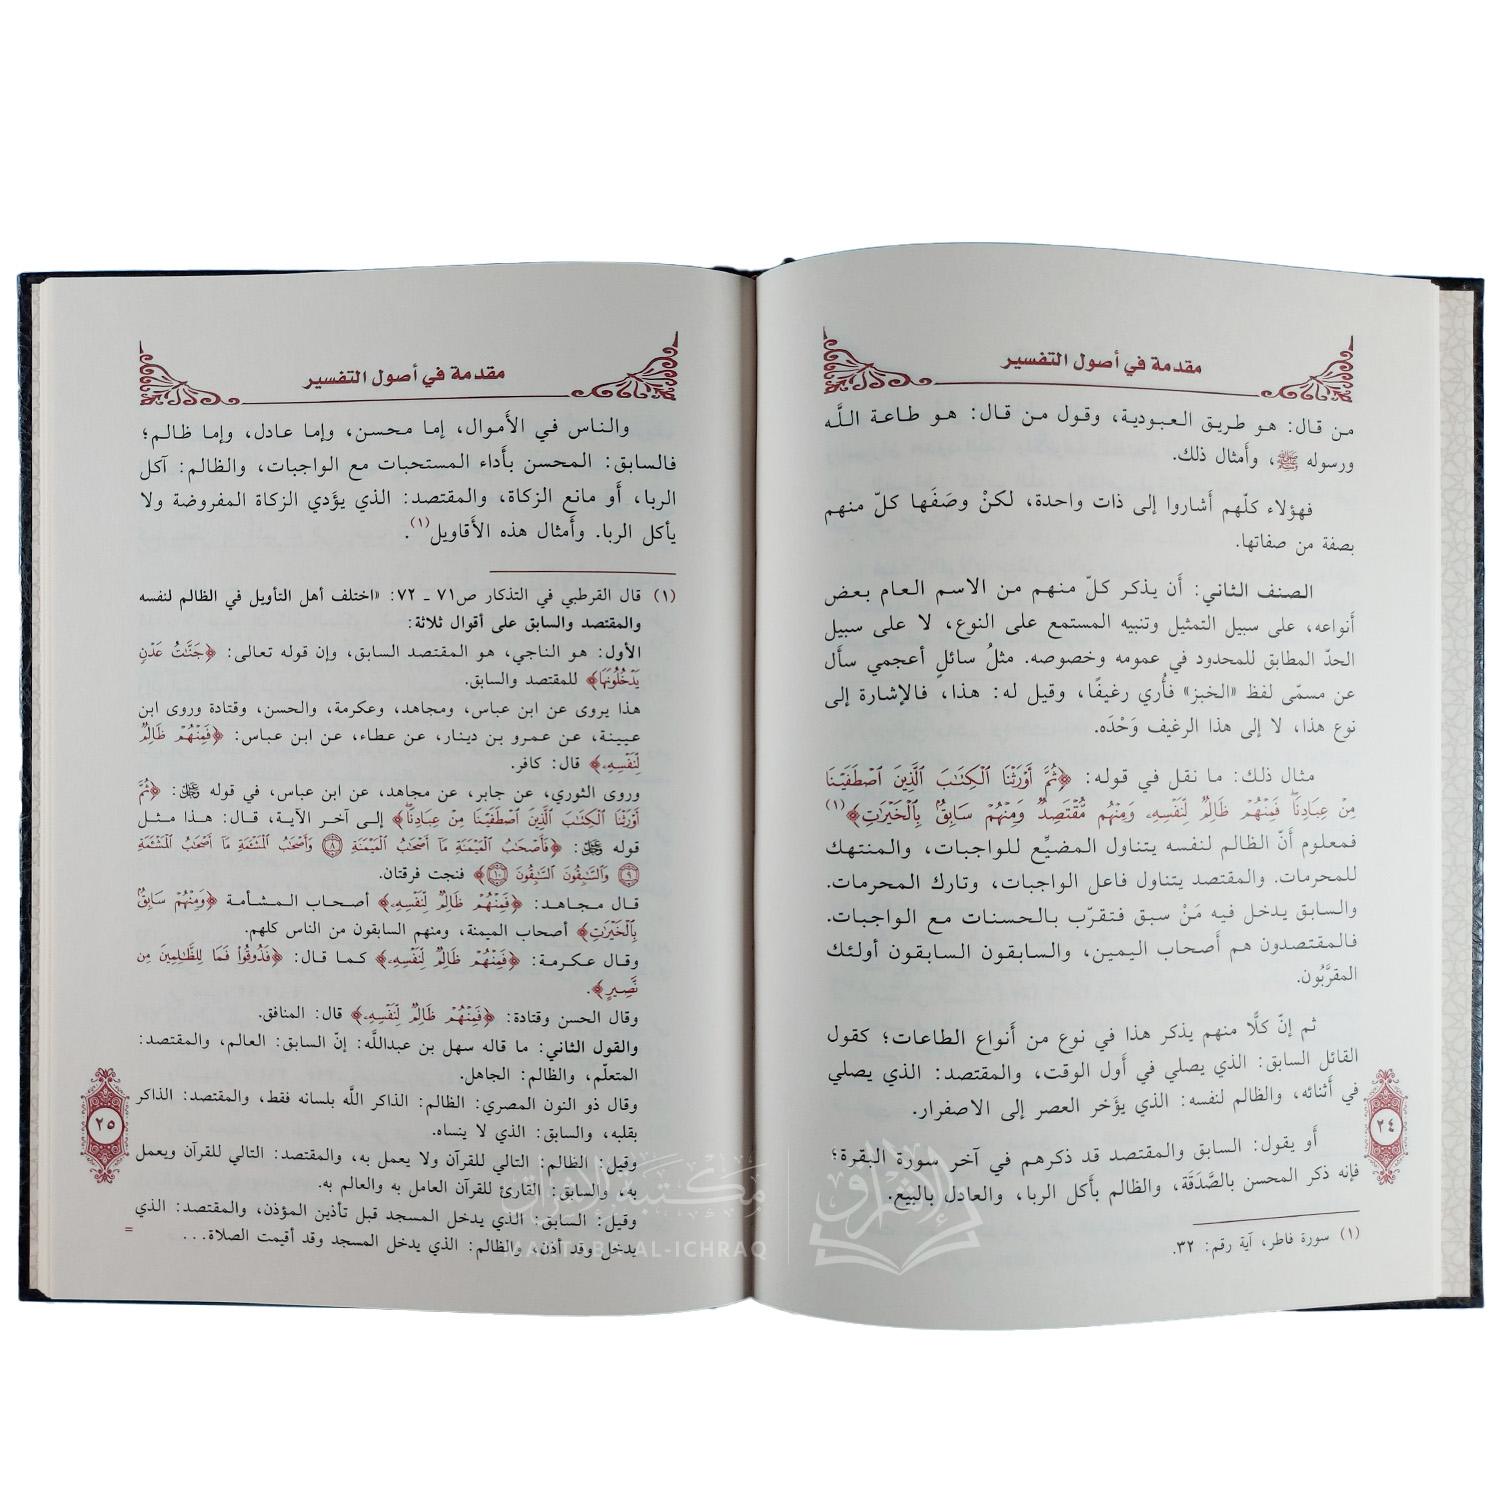 مقدمة في أصول التفسير
من قال: هو طريق العبودية، وقول من قال: هو طاعة اللَّه
ورسوله ﷺ، وأَمثال ذلك.
فهؤلاء كلّهم أَشاروا إلى ذات واحدة، لكنْ وصَفَها كلّ منهم
بصفة من صفاتها.
الصنف الثاني: أَن يذكر كلّ منهم من الاسم العام بعض
أَنواعه، على سبيل التمثيل وتنبيه المستمع على النوع، لا على سبيل
الحدّ المطابق للمحدود في عمومه وخصوصه. مثلُ سائلٍ أعجمي سأَل
عن مسمّى لفظ «الخبز» فأُري رغيفًا، وقيل له: هذا، فالإشارة إلى
نوع هذا، لا إلى هذا الرغيف وَحْدَه.
مثال ذلك: ما نقل في قوله: ﴿ثُمَّ أَوْرَثْنَا الْكِتَابَ الَّذِينَ اصْطَفَيْنَا
مِنْ عِبَادِنَا فَمِنْهُمْ ظَالِمٌ لِنَفْسِهِ وَمِنْهُمْ مُقْتَصِدٌ وَمِنْهُمْ سَابِقٌ بِالْخَيْرَاتِ﴾(١)
فمعلوم أَنّ الظالم لنفسه يتناول المضيِّع للواجبات، والمنتهك
للمحرمات. والمقتصد يتناول فاعل الواجبات، وتارك المحرمات.
والسابق يدخل فيه مَنْ سبق فتقرّب بالحسنات مع الواجبات.
فالمقتصدون هم أَصحاب اليمين، والسابقون السابقون أولئك
المقرَّبُون.
ثم إنّ كلًّا منهم يذكر هذا في نوع من أَنواع الطاعات؛ كقول
القائل السابق: الذي يصلي في أَول الوقت، والمقتصد: الذي يصلي
في أَثنائه، والظالم لنفسه: الذي يؤَخر العصر إلى الاصفرار.
أَو يقول: السابق والمقتصد قد ذكرهم في آخر سورة البقرة؛
فإنه ذكر المحسن بالصَّدَقَة، والظالم بأَكل الربا، والعادل بالبيع.
(١) سورة فاطر، آية رقم: ٣٢.
٢٤
مقدمة في أصول التفسير
والناس في الأَموال، إما محسن، وإما عادل، وإما ظالم؛
فالسابق: المحسن بأَداء المستحبات مع الواجبات، والظالم: آكل
الربا، أَو مانع الزكاة، والمقتصد: الذي يؤَدي الزكاة المفروضة ولا
يأكل الربا. وأَمثال هذه الأَقاويل(١).
(١) قال القرطبي في التذكار ص٧١ ـ ٧٢: «اختلف أهل التأويل في الظالم لنفسه
والمقتصد والسابق على أقوال ثلاثة:
الأول: هو الناجي، هو المقتصد السابق، وإن قوله تعالى: ﴿جَنَّاتُ عَدْنٍ
يَدْخُلُونَهَا﴾ للمقتصد والسابق.
هذا يروى عن ابن عباس، ومجاهد، وعكرمة، والحسن، وقتادة وروى ابن
عيينة، عن عمرو بن دينار، عن عطاء، عن ابن عباس: ﴿فَمِنْهُمْ ظَالِمٌ
لِنَفْسِهِ﴾ قال: كافر.
وروى الثوري، عن جابر، عن مجاهد، عن ابن عباس، في قوله ﷻ: ﴿ثُمَّ
أَوْرَثْنَا الْكِتَابَ الَّذِينَ اصْطَفَيْنَا مِنْ عِبَادِنَا﴾ إلى آخر الآية، قال: هذا مثل
قوله ﷻ: ﴿فَأَصْحَابُ الْمَيْمَنَةِ مَا أَصْحَابُ الْمَيْمَنَةِ ٨ وَأَصْحَابُ الْمَشْأَمَةِ مَا أَصْحَابُ الْمَشْأَمَةِ
٩ وَالسَّابِقُونَ السَّابِقُونَ ١٠﴾ فنجت فرقتان.
قال مجاهد: ﴿فَمِنْهُمْ ظَالِمٌ لِنَفْسِهِ﴾ أصحاب المشأمة ﴿وَمِنْهُمْ سَابِقٌ
بِالْخَيْرَاتِ﴾ أصحاب الميمنة، ومنهم السابقون من الناس كلهم.
وقال عكرمة: ﴿فَمِنْهُمْ ظَالِمٌ لِنَفْسِهِ﴾ كما قال: ﴿فَذُوقُوا فَمَا لِلظَّالِمِينَ مِنْ
نَصِيرٍ﴾.
وقال الحسن وقتادة: ﴿فَمِنْهُمْ ظَالِمٌ لِنَفْسِهِ﴾ قال: المنافق.
والقول الثاني: ما قاله سهل بن عبداللَّه: إنّ السابق: العالم، والمقتصد:
المتعلّم، والظالم: الجاهل.
وقال ذو النون المصري: الظالم: الذاكر اللَّه بلسانه فقط، والمقتصد: الذاكر
بقلبه، والسابق: الذي لا ينساه.
وقيل: الظالم: التالي للقرآن ولا يعمل به، والمقتصد: التالي للقرآن ويعمل
به، والسابق: القارئ للقرآن العامل به والعالم به.
وقيل: السابق: الذي يدخل المسجد قبل تأذين المؤذن، والمقتصد: الذي
يدخل وقد أذن، والظالم: الذي يدخل المسجد وقد أقيمت الصلاة... =
٢٥
مكتبة الإشراق
MAKTABA AL-ICHRAQ
الإشراق